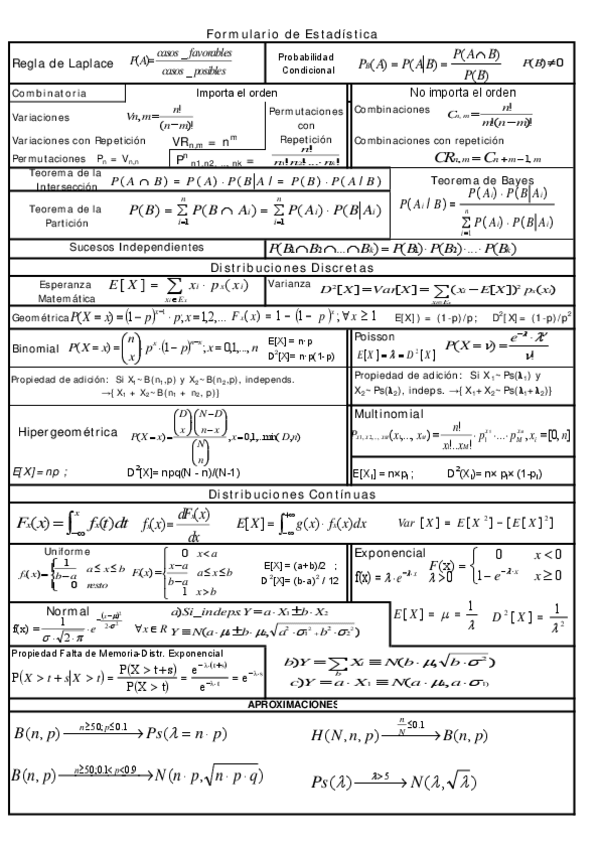 Formulario de Estadística
Regla de Laplace P(A)= casos _ favorables / casos _ posibles
Probabilidad Condicional P_B(A) = P(A|B) = P(A∩B) / P(B) P(B)≠0
Combinatoria Importa el orden No importa el orden
Variaciones V_n,m = n! / (n−m)!
Variaciones con Repetición VR_n,m = n^m
Permutaciones P_n = V_n,n
Permutaciones con Repetición
P^n _n1,n2, ..., nk = n! / n1! n2! ... nk!
Combinaciones C_n,m = n! / m!(n−m)!
Combinaciones con repetición
CR_n,m = C_n+m−1,m
Teorema de la Intersección P(A ∩ B) = P(A) · P(B/A) = P(B) · P(A/B)
Teorema de la Partición P(B) = Σ_{i=1}^{n} P(B ∩ A_i) = Σ_{i=1}^{n} P(A_i) · P(B|A_i)
Teorema de Bayes
P(A_i / B) = P(A_i) · P(B|A_i) / Σ_{i=1}^{n} P(A_i) · P(B|A_i)
Sucesos Independientes P(B_1∩B_2∩...∩B_k) = P(B_1)·P(B_2)·...·P(B_k)
Distribuciones Discretas
Esperanza Matemática E[X] = Σ x_i · p_x(x_i)
Varianza D²[X]=Var[X]=Σ(x_i − E[X])² p_x(x_i)
Geométrica P(X = x)=(1−p)^{x−1}·p; x=1,2,... F_x(x) = 1 − (1 − p)^x; ∀x ≥ 1 E[X]) = (1-p)/p; D²[X] = (1-p)/p²
Binomial P(X = x) = (n x)·p^x·(1−p)^{n−x}; x=0,1,..., n E[X]= n·p
D²[X]= n·p(1-p)
Propiedad de adición: Si X₁~B(n₁,p) y X₂~B(n₂,p), independs.
→{ X₁ + X₂~B(n₁ + n₂, p)}
Poisson
E[X] = λ = D²[X] P(X = ν) = e^{−λ}·λ^ν / ν!
Propiedad de adición: Si X₁~ Ps(λ₁) y
X₂~ Ps(λ₂), indeps. →{ X₁+ X₂~Ps(λ₁+λ₂)}
Hipergeométrica P(X = x) = (D x)·(N−D n−x) / (N n), x=0,1,...min(D,n)
E[X] = np ; D²[X]= npq(N - n)/(N-1)
Multinomial
P_{x1,x2,...,xM}(x₁,..., x_M) = n! / x₁!...x_M! · p₁^{x1} ··· p_M^{xM}, x_i = [0, n]
E[X_i] = n×p_i ; D²(X_i)= n× p_i× (1-p_i)
Distribuciones Contínuas
F_x(x) = ∫_{−∞}^{x} f_x(t)dt f_x(x) = dF_x(x) / dx E[X] = ∫_{−∞}^{+∞} g(x)·f_x(x)dx Var [X] = E[X²] − [E[X]²]
Uniforme
f_x(x) = { 1 / b−a a ≤ x ≤ b
0 resto
F(x) = { 0 x<a
x−a / b−a a≤x≤b
1 x>b
E[X] = (a+b)/2 ;
D²[X]= (b-a)² / 12
Exponencial
f(x) = λ·e^{−λ·x} λ>0 F(x) = { 0 x < 0
1−e^{−λ·x} x ≥ 0
E[X] = μ = 1/λ D²[X] = 1/λ²
Normal
f(x) = 1 / σ·√2·π · e^{−(x−μ)² / 2σ²} ∀x∈R
a)Si_indeps Y = a·X₁ ± b·X₂
Y ≡ N(a·μ₁ ± b·μ₂, √a²·σ₁² + b²·σ₂²)
Propiedad Falta de Memoria-Distr. Exponencial
P(X > t + s|X > t) = P(X > t+s) / P(X > t) = e^{−λ(t+s)} / e^{−λ·t} = e^{−λ·s}
b)Y = Σ_b X_i ≡ N(b·μ, √b·σ²)
c)Y = a·X₁ ≡ N(a·μ, a·σ₁)
APROXIMACIONES
B(n, p) —n≥50; p≤0.1→ Ps(λ = n·p)
H(N, n, p) —n/N ≤0.1→ B(n, p)
B(n, p) —n≥50;0.1<p<0.9→ N(n·p, √n·p·q)
Ps(λ) —λ>5→ N(λ, √λ)